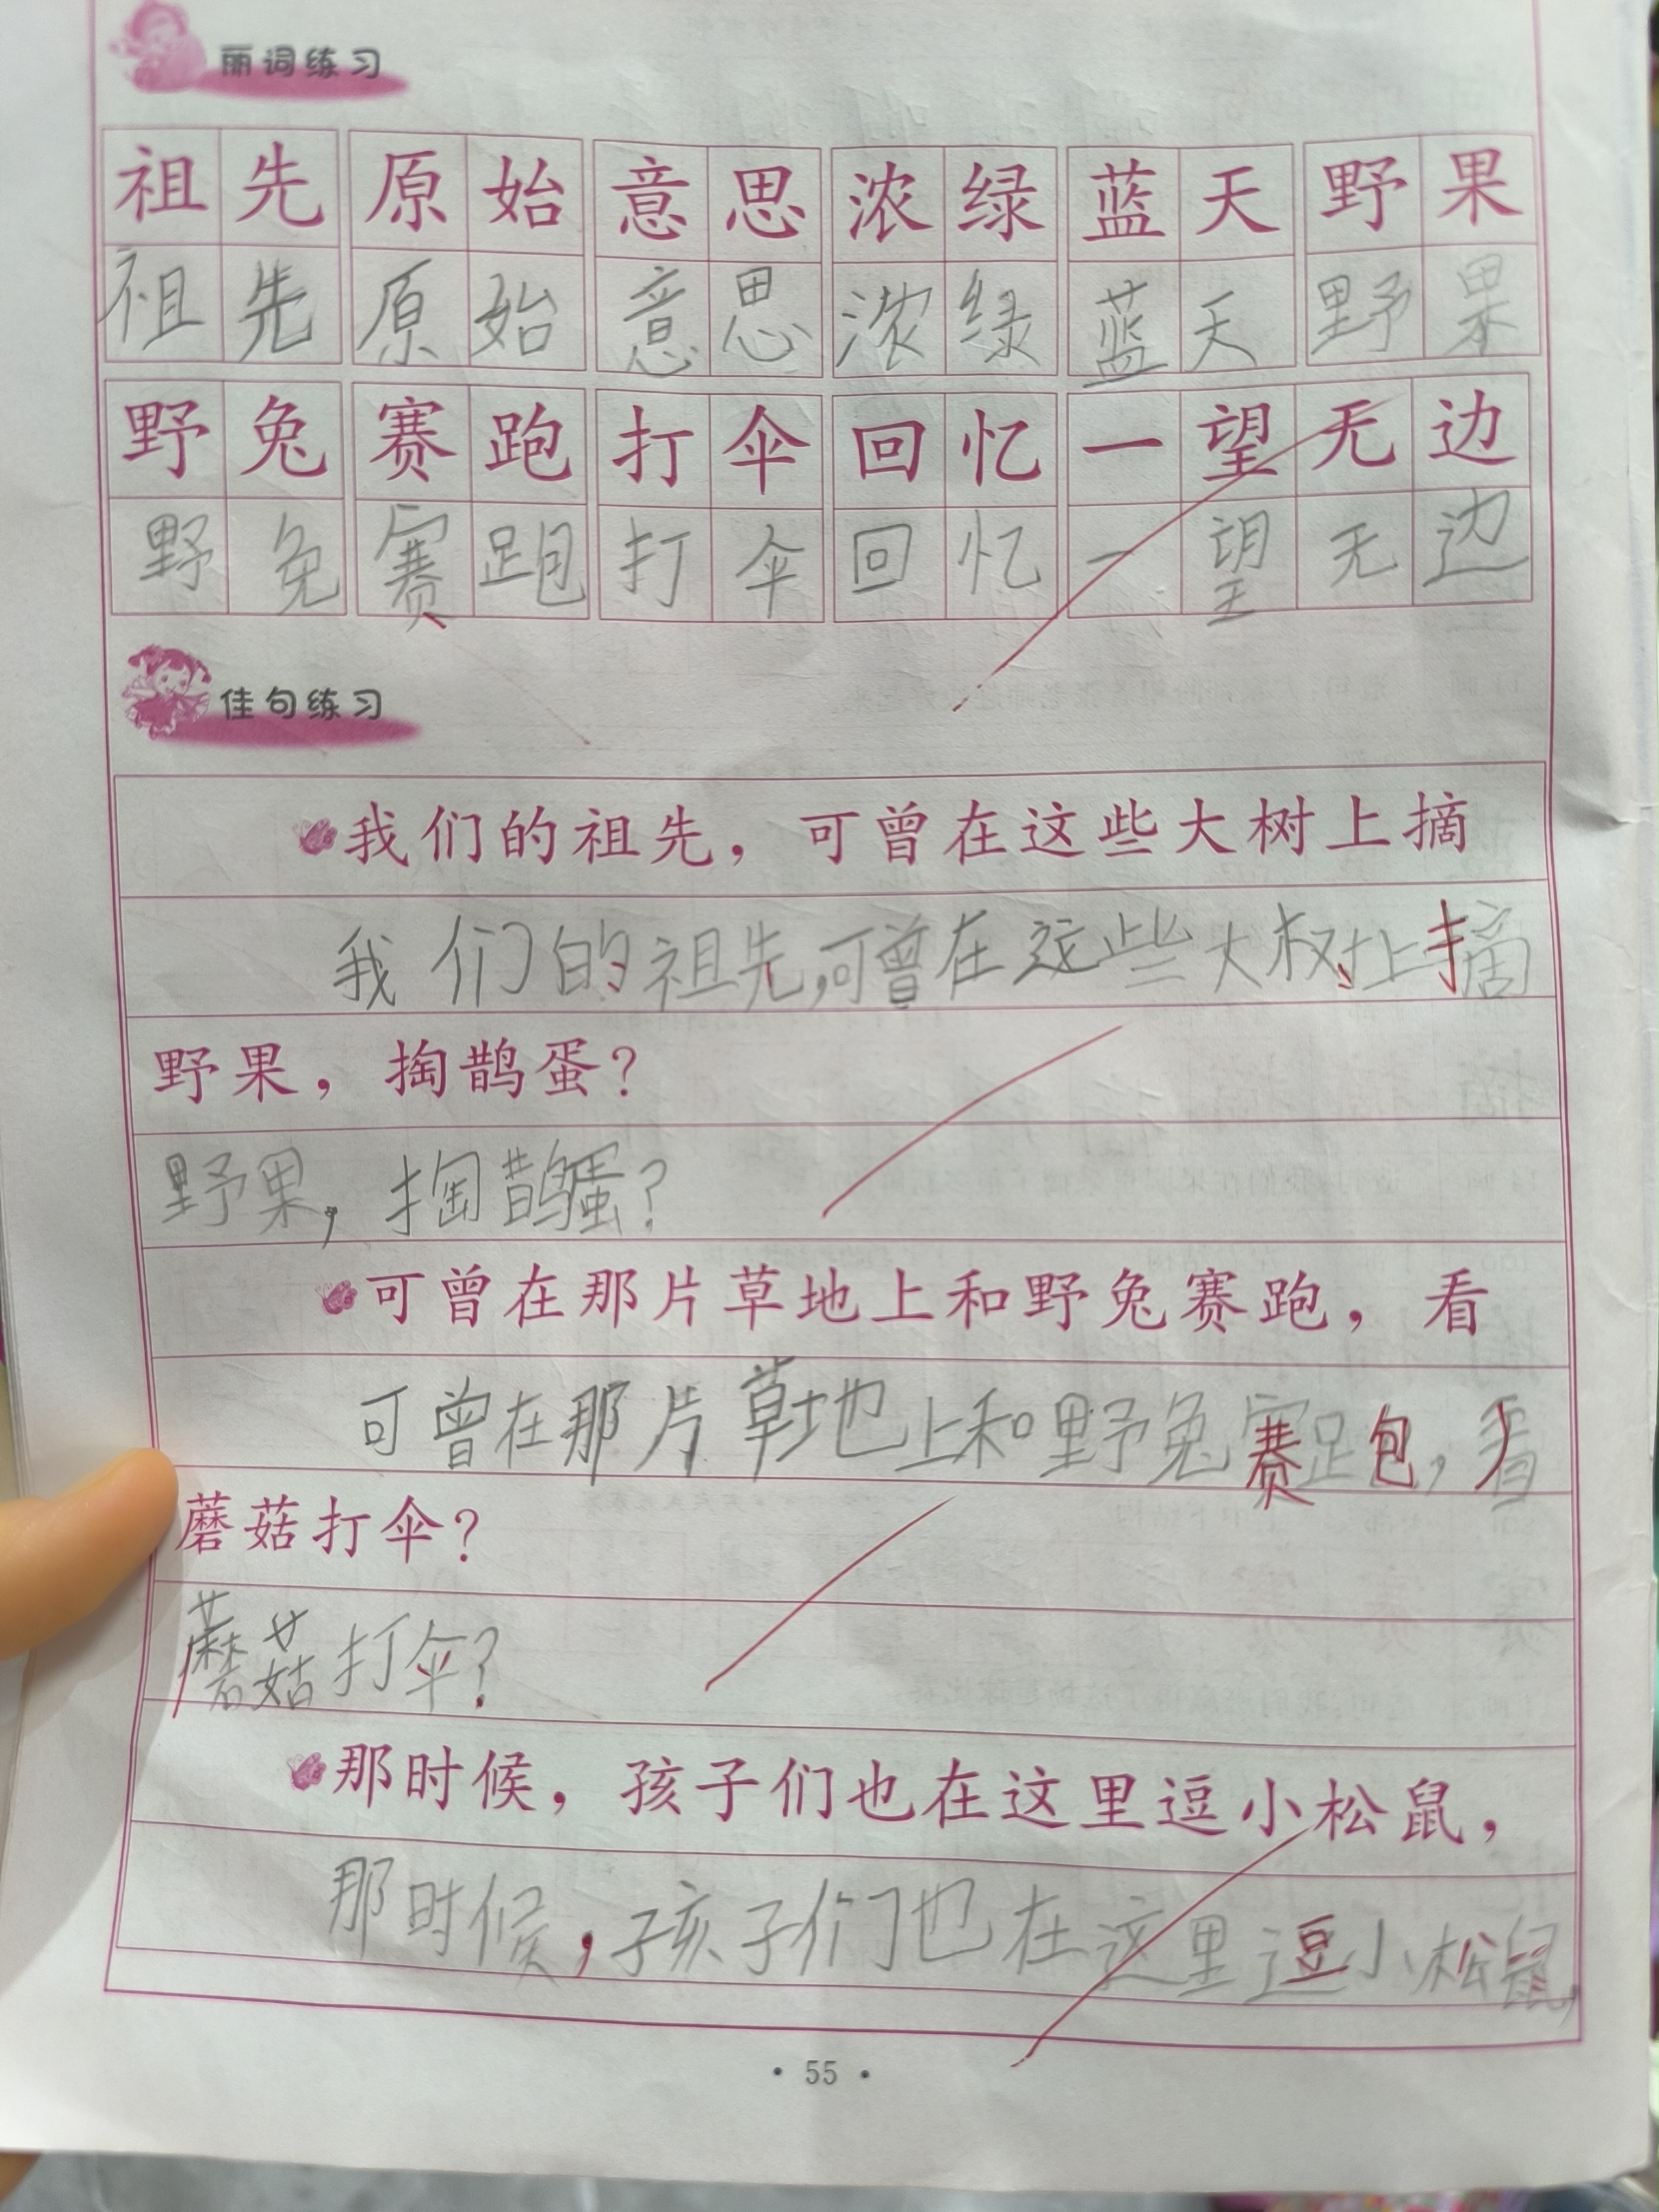 丽词练习
祖先 原始 意思 浓绿 蓝天 野果
祖先 原始 意思 浓绿 蓝天 野果
野兔 赛跑 打伞 回忆 一望无边
野兔 赛跑 打伞 回忆 一望无边
佳句练习
我们的祖先，可曾在这些大树上摘
我们的祖先，可曾在这些大树上摘
野果，掏鹊蛋？
野果，掏鹊蛋？
可曾在那片草地上和野兔赛跑，看
可曾在那片草地上和野兔赛跑，看
蘑菇打伞？
蘑菇打伞？
那时候，孩子们也在这里逗小松鼠，
那时候，孩子们也在这里逗小松鼠，
• 55 •